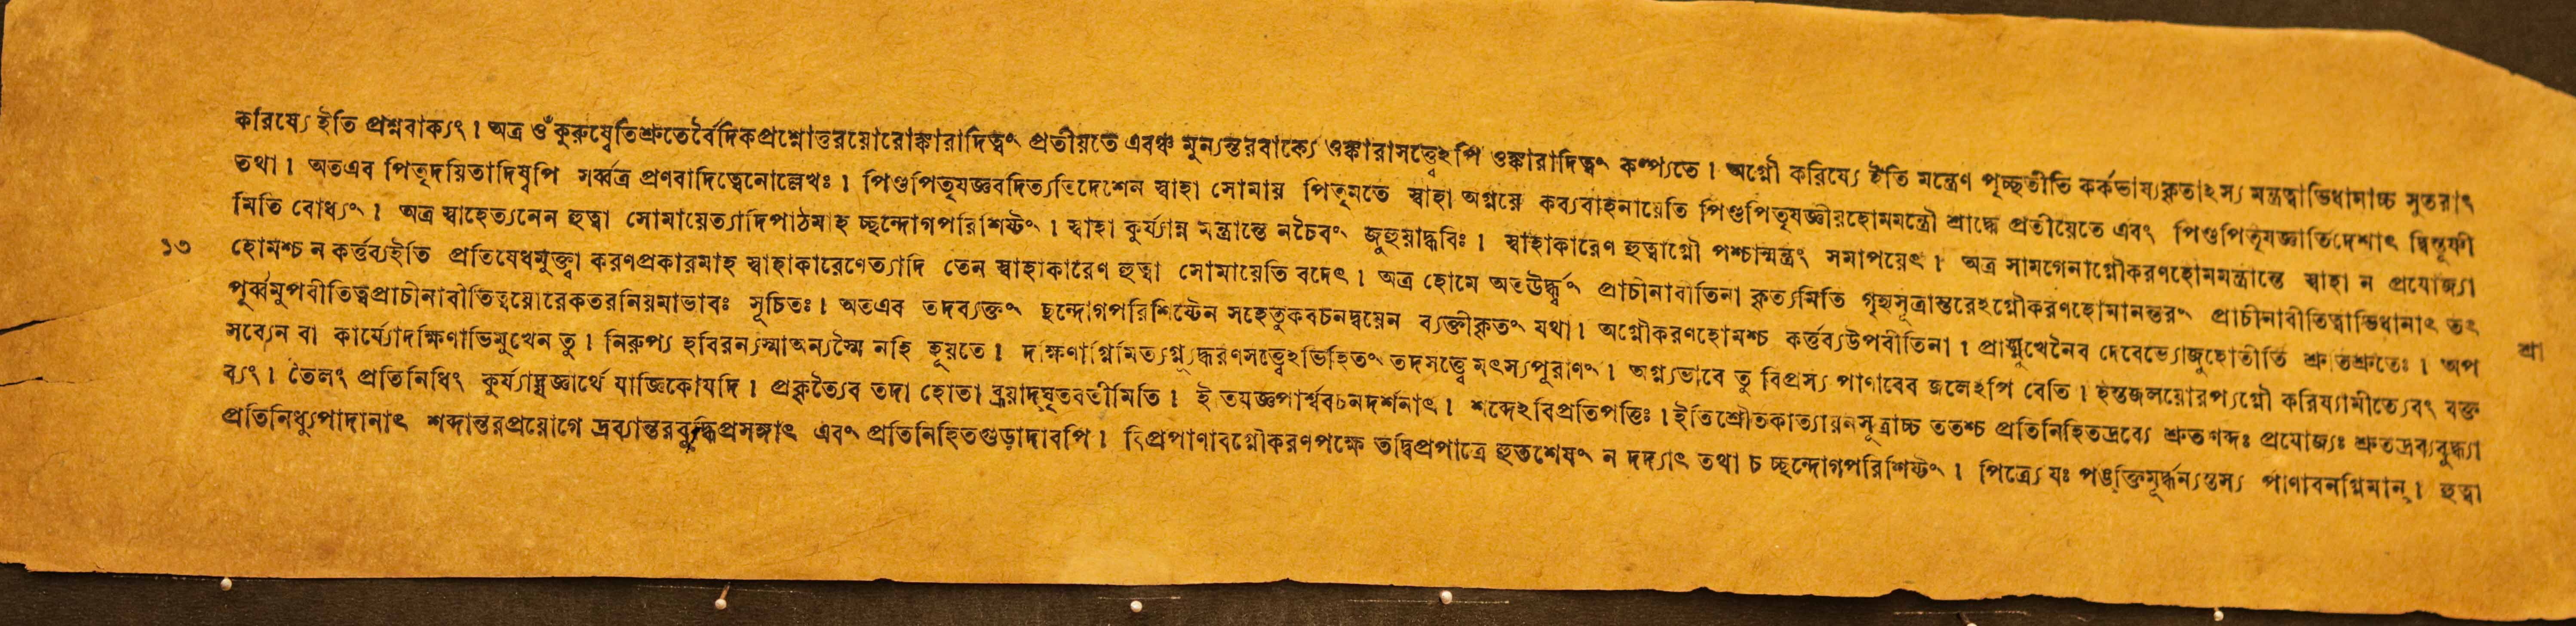 করিষ্যে ইতি প্রশ্নবাক্যং। অত্র ওঁ কুরুষ্বেতিশ্রুতের্বৈদিকপ্রশ্নোত্তরয়োরোঙ্কারাদিত্বং প্রতীয়তে এবঞ্চ মুন্যন্তরবাক্যে ওঙ্কারাসত্ত্বেঽপি ওঙ্কারাদিত্বং কল্প্যতে। অগ্নৌ করিষ্যে ইতি মন্ত্রেণ পৃচ্ছতীতি কর্কভাষ্যকৃতাঽস্য মন্ত্রত্বাভিধানাচ্চ সুতরাং
তথা। অতএব পিতৃদয়িতাদিষ্বপি সর্ব্বত্র প্রণবাদিত্বেনোল্লেখঃ। পিণ্ডপিতৃযজ্ঞবদিত্যতিদেশেন স্বাহা সোমায় পিতৃমতে স্বাহা অগ্নয়ে কব্যবাহনায়েতি পিণ্ডপিতৃযজ্ঞীয়হোমমন্ত্রৌ শ্রাদ্ধে প্রতীয়েতে এবং পিণ্ডপিতৃযজ্ঞাতিদেশাৎ দ্বিস্তূষ্ণী
মিতি বোধ্যং। অত্র স্বাহেত্যনেন হুত্বা সোমায়েত্যাদিপাঠমাহ চ্ছন্দোগপরিশিষ্টং। স্বাহা কুর্য্যান্ন মন্ত্রান্তে নচৈবং জুহুয়াদ্ধবিঃ। স্বাহাকারেণ হুত্বাগ্নৌ পশ্চান্মন্ত্রং সমাপয়েৎ। অত্র সামগেনাগ্নৌকরণহোমমন্ত্রান্তে স্বাহা ন প্রযোজ্যা
১৩ হোমশ্চ ন কর্ত্তব্যইতি প্রতিষেধমুক্ত্বা করণপ্রকারমাহ স্বাহাকারেণেত্যাদি তেন স্বাহাকারেণ হুত্বা সোমায়েতি বদেৎ। অত্র হোমে অতঊর্দ্ধ্বং প্রাচীনাবীতিনা কৃত্যমিতি গৃহ্যসূত্রান্তরেঽগ্নৌকরণহোমানন্তরং প্রাচীনাবীতিত্বাভিধানাৎ তৎ
পূর্ব্বমুপবীতিত্বপ্রাচীনাবীতিত্বয়োরেকতরনিয়মাভাবঃ সূচিতঃ। অতএব তদব্যক্তং ছন্দোগপরিশিষ্টেন সহেতুকবচনদ্বয়েন ব্যক্তীকৃতং যথা। অগ্নৌকরণহোমশ্চ কর্ত্তব্যউপবীতিনা। প্রাঙ্মুখেনৈব দেবেভ্যোজুহোতীতি শ্রুতিশ্রুতেঃ। অপ শ্রা
সব্যেন বা কার্য্যোদক্ষিণাভিমুখেন তু। নিরুপ্য হবিরন্যস্মাঅন্যস্মৈ নহি হূয়তে। দক্ষিণাগ্নিমিত্যগ্ন্যুদ্ধরণসত্ত্বেঽভিহিতং তদসত্ত্বে মৎস্যপুরাণং। অগ্ন্যভাবে তু বিপ্রস্য পাণাবেব জলেঽপি বেতি। হস্তজলয়োরপ্যগ্নৌ করিষ্যামীত্যেবং বক্ত
ব্যং। তৈলং প্রতিনিধিং কুর্য্যাদ্যজ্ঞার্থে যাজ্ঞিকোযদি। প্রকৃত্যৈব তদা হোতা ব্রূয়াদ্ঘৃতবতীমিতি। ইতিযজ্ঞপার্শ্ববচনদর্শনাৎ। শব্দেঽবিপ্রতিপত্তিঃ। ইতিশ্রৌতকাত্যায়নসূত্রাচ্চ ততশ্চ প্রতিনিহিতদ্রব্যে শ্রুতশব্দঃ প্রযোজ্যঃ শ্রুতদ্রব্যবুদ্ধ্যা
প্রতিনিধ্যুপাদানাৎ শব্দান্তরপ্রয়োগে দ্রব্যান্তরবুদ্ধিপ্রসঙ্গাৎ এবং প্রতিনিহিতগুড়াদাবপি। বিপ্রপাণাবগ্নৌকরণপক্ষে তদ্বিপ্রপাত্রে হুতশেষং ন দদ্যাৎ তথা চ চ্ছন্দোগপরিশিষ্টং। পিত্র্যে যঃ পঙক্তিমূর্দ্ধন্যস্তস্য পাণাবনগ্নিমান্। হুত্বা